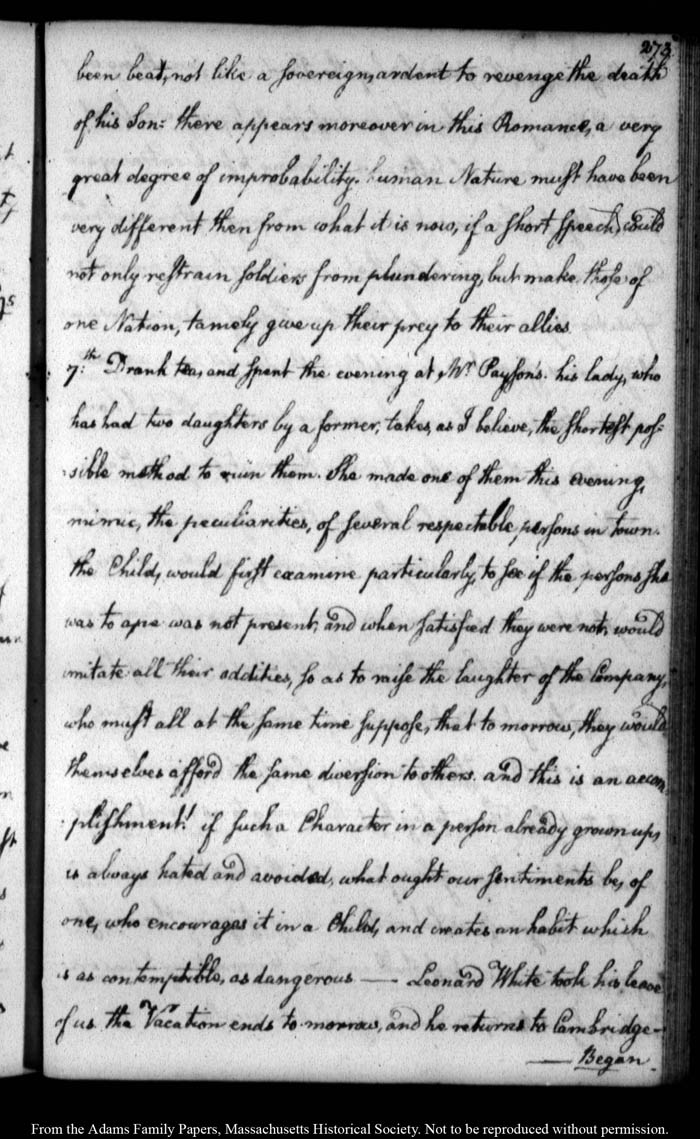 273
been beat, not like a sovereign, ardent to revenge the death
of his Son: there appears moreover in this Romance, a very
great degree of improbability. human Nature must have been
very different then from what it is now, if a short speech, could
not only restrain soldiers from plundering, but make those of
one Nation, tamely give up their prey to their allies.
7:th Drank tea, and spent the evening at, Mr Payson's. his lady, who
has had two daughters by a former, takes, as I believe, the shortest pos-
sible method to ruin them. She made one of them this evening,
mimic, the peculiarities, of several respectable, persons in town.
the Child, would first examine particularly, to see if the persons she
was to ape was not present; and when satisfied they were not, would
imitate all their oddities, so as to raise the laughter of the Company,
who must all at the same time suppose, that to morrow, they would
themselves afford the same diversion to others. and this is an accom-
plishment! if such a Character in a person already grown up,
is always hated and avoided, what ought our sentiments be, of
one, who encourages it in a Child, and creates an habit which
is as contemptible, as dangerous — Leonard White took his leave
of us. the Vacation ends to morrow, and he returns to Cambridge—
— Began.
From the Adams Family Papers, Massachusetts Historical Society. Not to be reproduced without permission.